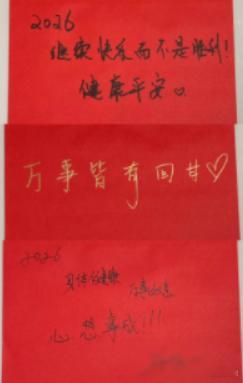 2026
继续快乐而不是胜利!
健康平安
万事皆有回甘♡
2026
身体健康
万事如意
心想事成!!!